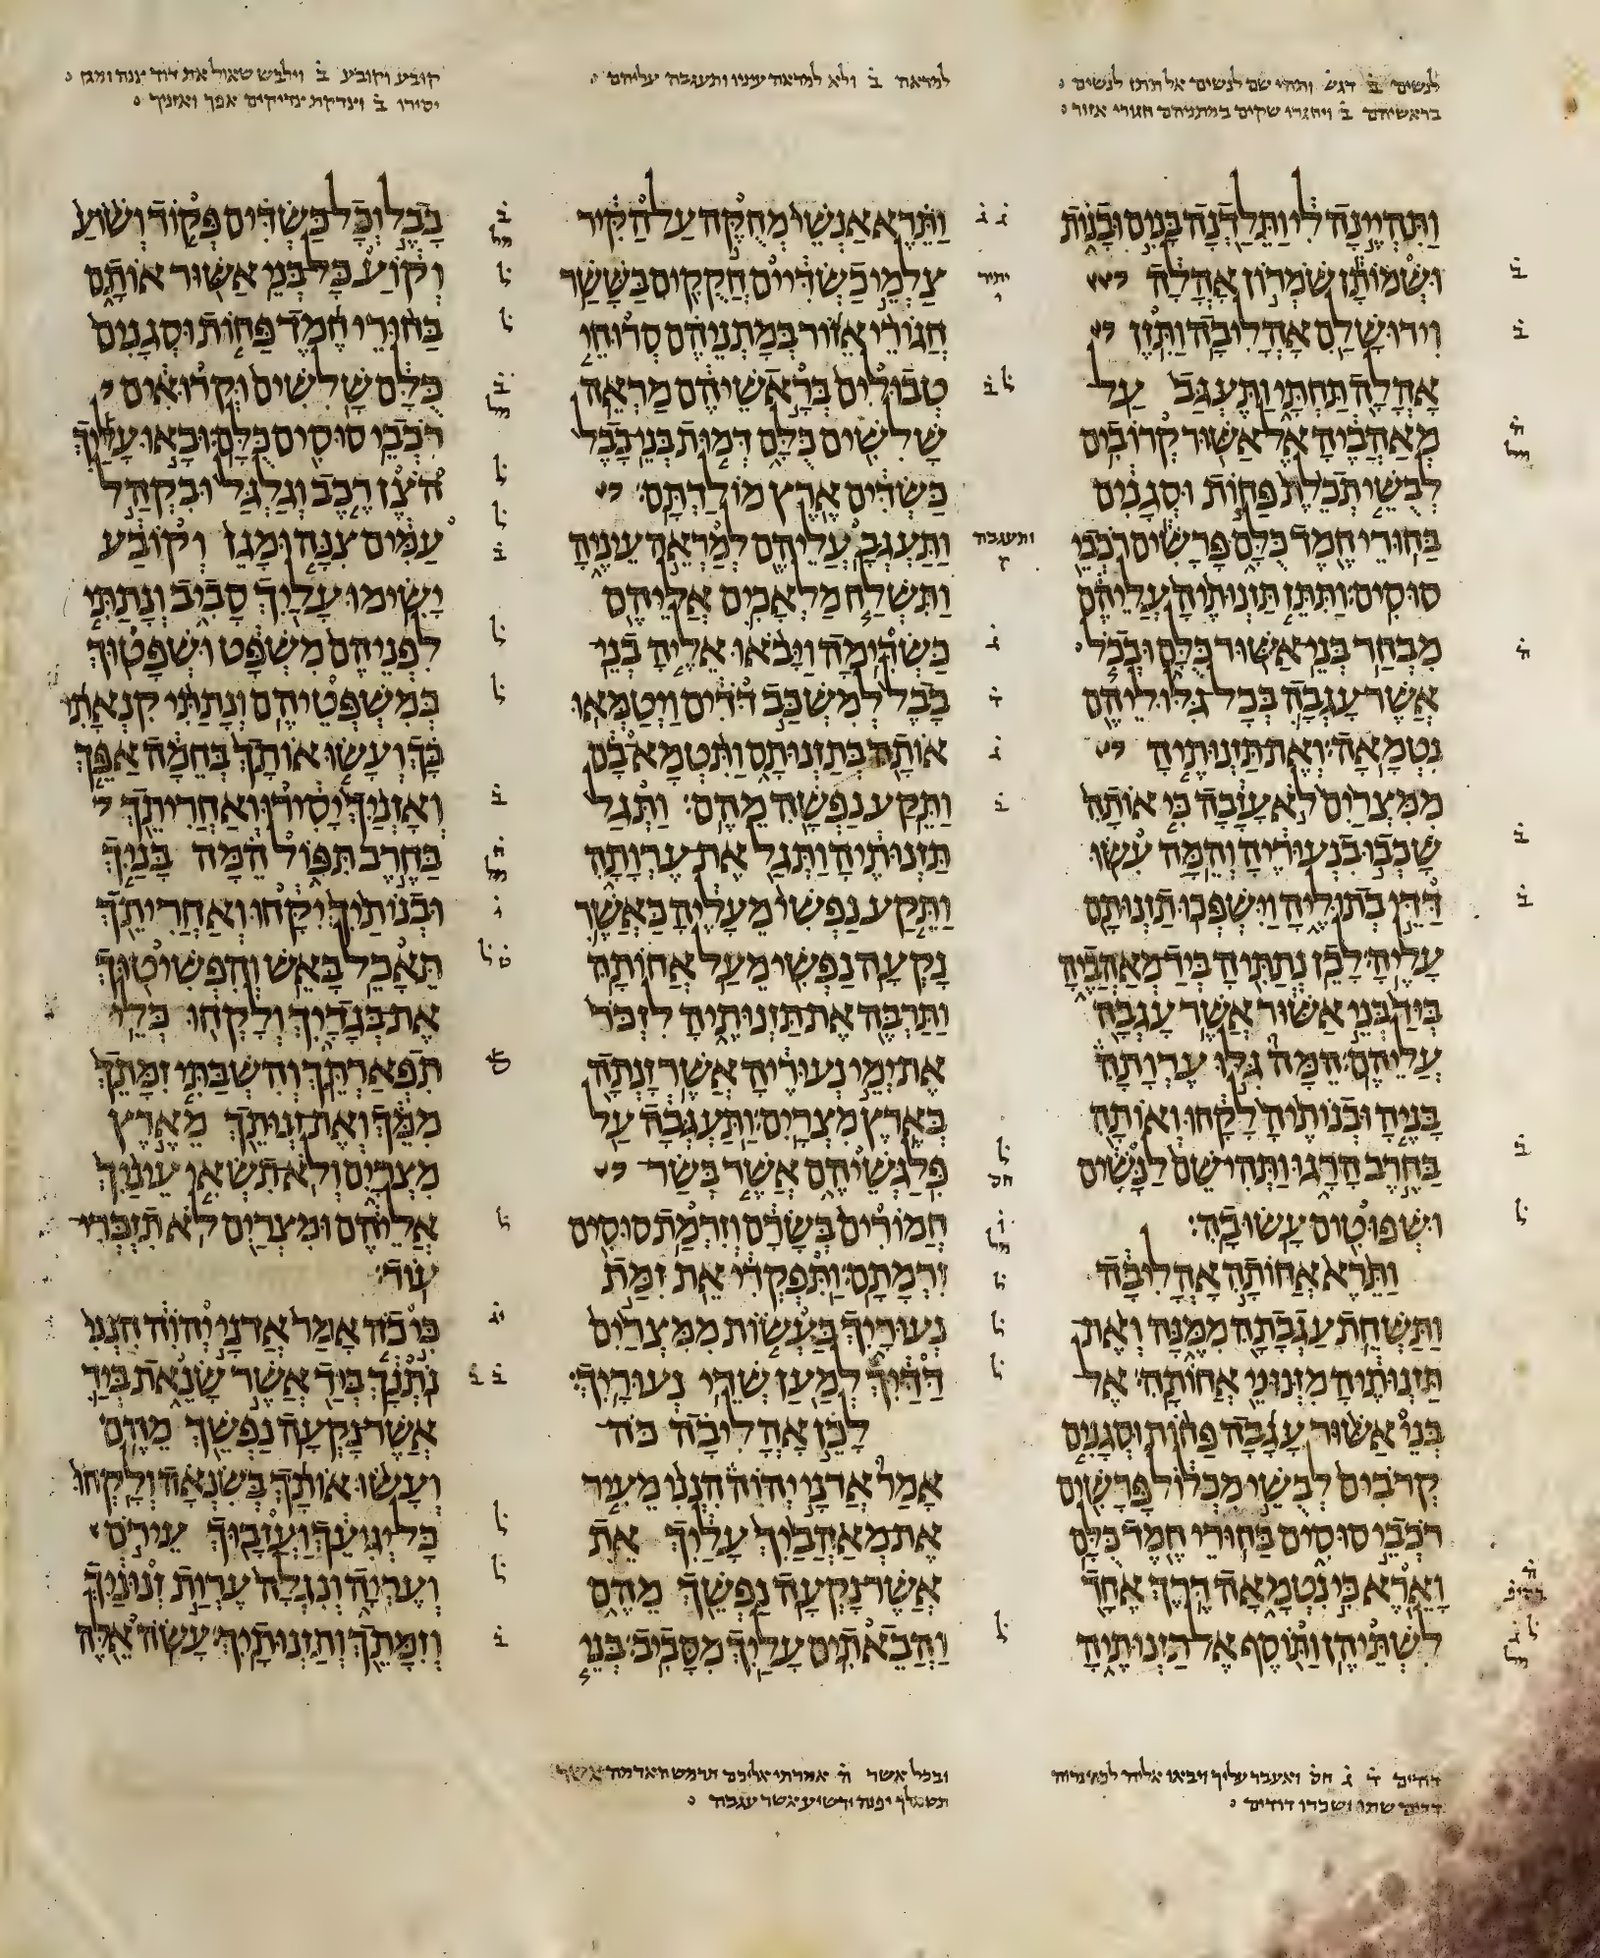 לנשים ב דגש ותהי שם לנשים אל תתן לנשים
בראשיהם ב ויחגרו שקים במתניהם חגורי אזור
ותהיינה לי ותלדנה בנים ובנות
ושמותן שמרון אהלה
וירושלם אהליבה ותזן
אהלה תחתי ותעגב על
מאהביה אל אשור קרובים
לבשי תכלת פחות וסגנים
בחורי חמד כלם פרשים רכבי
סוסים׃ ותתן תזנותיה עליהם
מבחר בני אשור כלם ובכל
אשר עגבה בכל גלוליהם
נטמאה׃ ואת תזנותיה
ממצרים לא עזבה כי אותה
שכבו בנעוריה והמה עשו
דדי בתוליה וישפכו תזנותם
עליה׃ לכן נתתיה ביד מאהביה
ביד בני אשור אשר עגבה
עליהם׃ המה גלו ערותה
בניה ובנותיה לקחו ואותה
בחרב הרגו ותהי שם לנשים
ושפוטים עשו בה׃
ותרא אחותה אהליבה
ותשחת עגבתה ממנה ואת
תזנותיה מזנוני אחותה׃ אל
בני אשור עגבה פחות וסגנים
קרבים לבשי מכלול פרשים
רכבי סוסים בחורי חמד כלם
וארא כי נטמאה דרך אחד
לשתיהן ותוסף אל תזנותיה
למראה ב ולא למראה עיניו ותעגבה עליהם
ותרא אנשי מחקה על הקיר
צלמי כשדיים חקקים בששר
חגורי אזור במתניהם סרוחי
טבולים בראשיהם מראה
שלישים כלם דמות בני בבל
כשדים ארץ מולדתם׃
ותעגב עליהם למראה עיניה
ותשלח מלאכים אליהם
כשדימה ויבאו אליה בני
בבל למשכב דדים ויטמאו
אותה בתזנותם ותטמא בם
ותקע נפשה מהם׃ ותגל
תזנותיה ותגל את ערותה
ותקע נפשי מעליה כאשר
נקעה נפשי מעל אחותה
ותרבה את תזנותיה לזכר
את ימי נעוריה אשר זנתה
בארץ מצרים׃ ותעגבה על
פלגשיהם אשר בשר
חמורים בשרם וזרמת סוסים
זרמתם׃ ותפקדי את זמת
נעוריך בעשות ממצרים
דדיך למען שדי נעוריך׃
לכן אהליבה כה
אמר אדני יהוה הנני מעיר
את מאהביך עליך את
אשר נקעה נפשך מהם
והבאתים עליך מסביב׃ בני
קובע וקובע ב וילבש שאול את דוד צנה ומגן
יסירו ב וצדקת צדיקים אפך ואזניך
בבל וכל כשדים פקוד ושוע
וקוע כל בני אשור אותם
בחורי חמד פחות וסגנים
כלם שלשים וקרואים
רכבי סוסים כלם׃ ובאו עליך
הצן רכב וגלגל ובקהל
עמים צנה ומגן וקובע
ישימו עליך סביב ונתתי
לפניהם משפט ושפטוך
במשפטיהם׃ ונתתי קנאתי
בך ועשו אותך בחמה אפך
ואזניך יסירו ואחריתך
בחרב תפול המה בניך
ובנותיך יקחו ואחריתך
תאכל באש׃ והפשיטוך
את בגדיך ולקחו כלי
תפארתך׃ והשבתי זמתך
ממך ואת זנותך מארץ
מצרים ולא תשאי עיניך
אליהם ומצרים לא תזכרי
עוד׃
כי כה אמר אדני יהוה הנני
נתנך ביד אשר שנאת ביד
אשר נקעה נפשך מהם׃
ועשו אותך בשנאה ולקחו
כל יגיעך ועזבוך עירם
ועריה ונגלה ערות זנוניך
וזמתך ותזנותיך׃ עשה אלה
דודים ד ג חס ואעבר עליך ויבאו אליה
שתו ושכרו דודים
ובכל אשר אמרתי אליכם
אשר עגבה